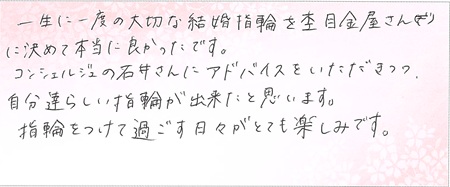 一生に一度の大切な結婚指輪を杢目金屋さん
に決めて本当に良かったです。
コンシェルジュの石井さんにアドバイスをいただきつつ、
自分達らしい指輪が出来たと思います。
指輪をつけて過ごす日々がとても楽しみです。